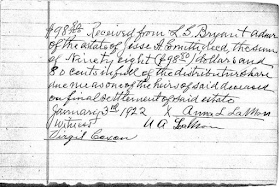 $98 80 Received from L.S. Bryant Admr
of the estate of Jesse A. Smith, died, the sum
of Ninety eight ($98 80) dollars and
80 cents in full of the distributive share
due me as one of the heirs of said deceased
on final settlement of said estate
January 3rd 1922 X Anna L LaMon
Witness U A LaMon
Virgil Coxon